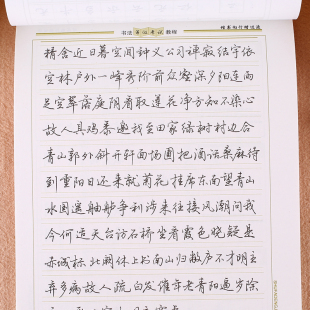 精舍近日暮空闻钟义公习禅寂结宇依
空林户外一峰秀阶前众壑深夕阳连雨
足空翠落庭阴看取莲花净方知不染心
故人具鸡黍邀我至田家绿树村边合
青山郭外斜开轩面场圃把酒话桑麻待
到重阳日还来就菊花挂席东南望青山
水国遥舳舻争利涉来往接风潮问我
今何适天台访石桥坐看霞色晓疑是
赤城标北阙休上书南山归敝庐不才明主
弃多病故人疏白发催年老青阳逼岁除